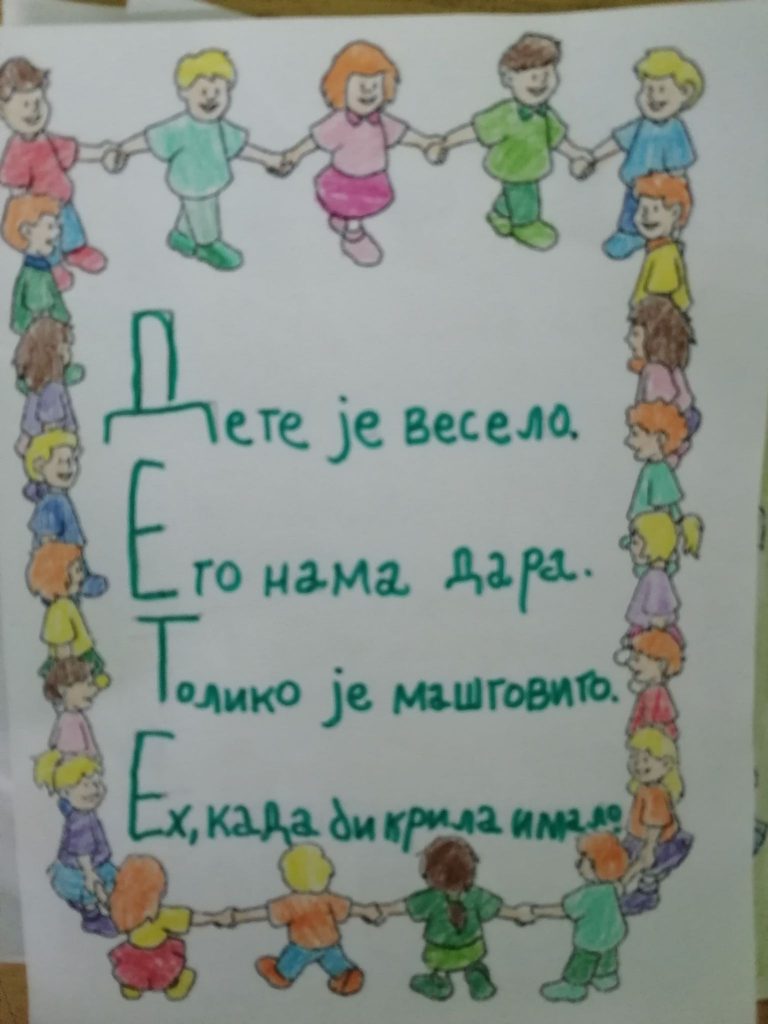 Дете је весело.
Ето нама дара.
Толико је маштовито.
Ех, када би крила имало